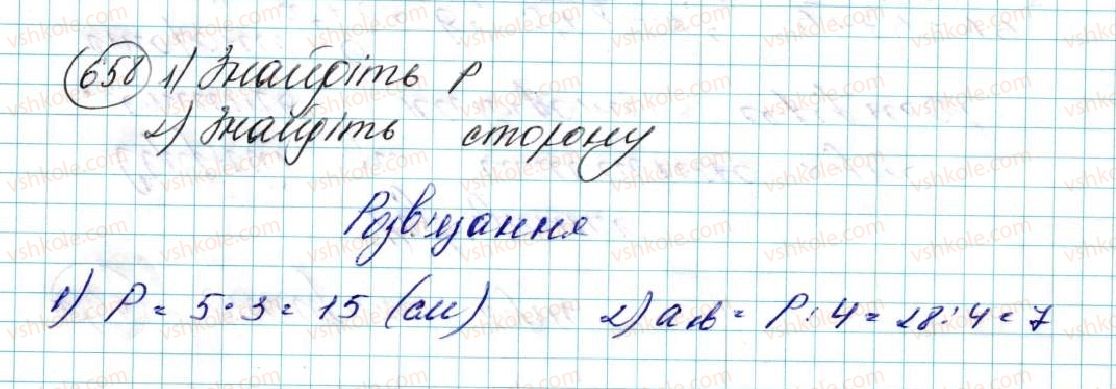 658 1) Знайдіть P
2) Знайдіть сторону
Розв'язання
1) P = 5 · 3 = 15 (см) 2) a кв = P : 4 = 28 : 4 = 7